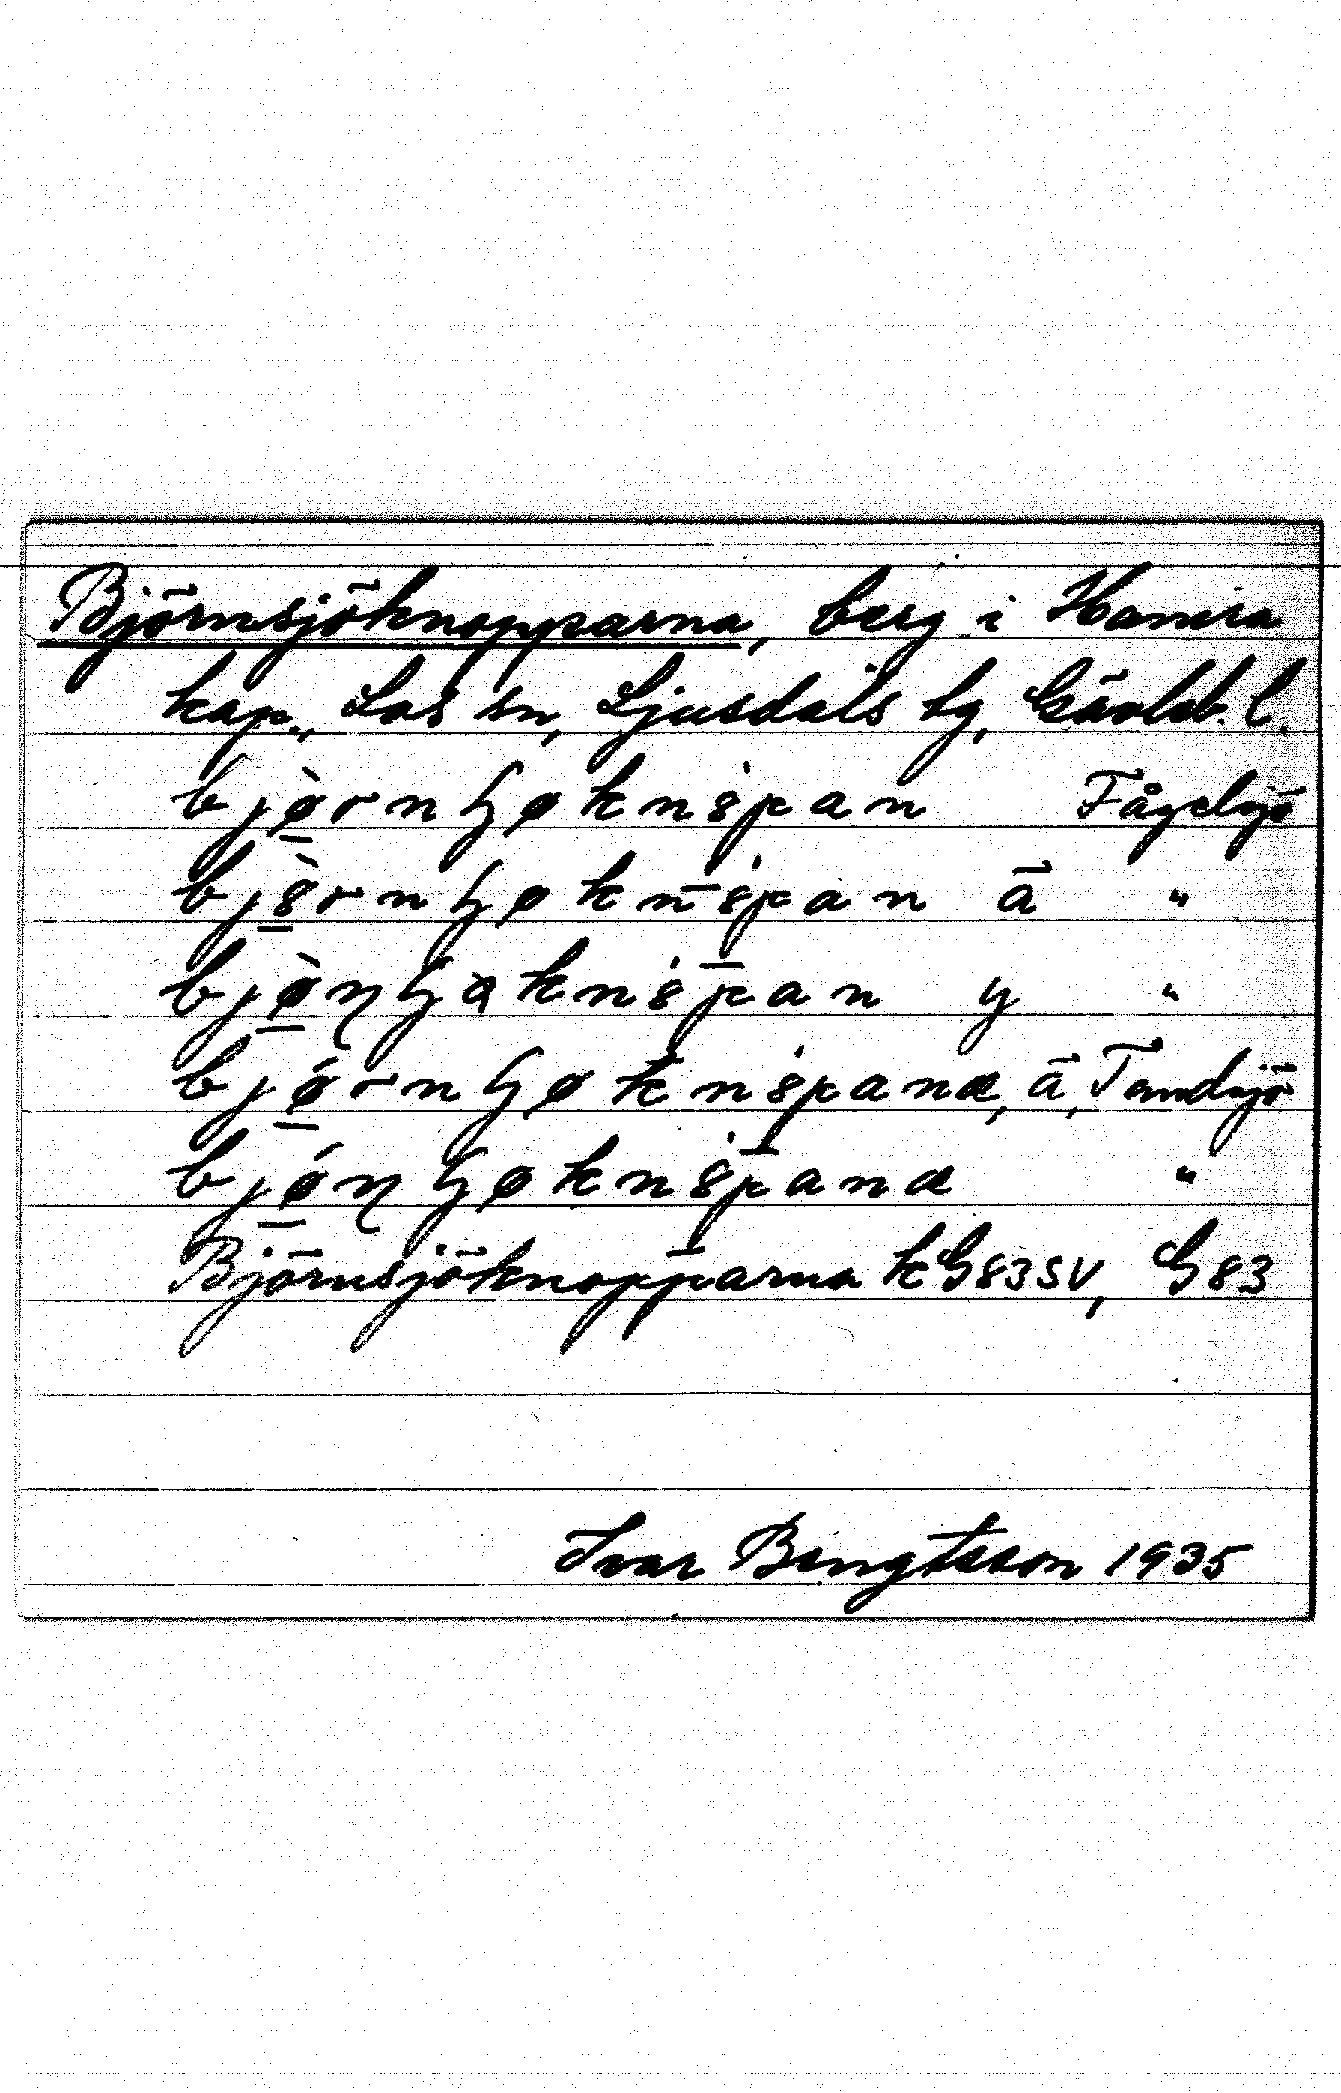 Björnsjöknopparna, berg i Hamra
kap., Los sn, Ljusdals tg, Gävleb. l.
bjø̀rnʃøknȯpan Fågelsjö
bjö̀rnʃøknȯpan ä "
bjø̀ɳʃaknȯpan y "
bjǿrnʃøknȯpanæ, ä, Tandsjö
bjǿɳʃøknȯpanæ "
Björnsjöknopparna kG83SV, G83
Ivar Bengtsson 1935